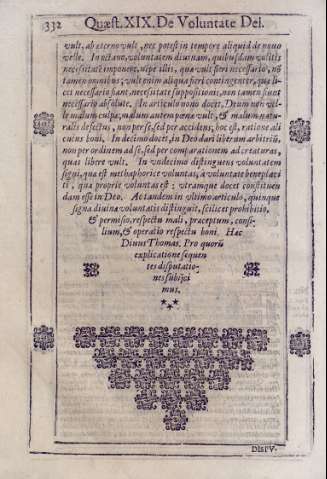 332 Quæst. XIX. De Voluntate Dei.
vult, ab æterno vult, nec potest in tempore aliquid de nouo
velle. In octauo, voluntatem diuinam, quibusdam volitis
necessitatē imponere, vt pe illis, quæ vult fieri necessario, nō
tamen omnibus; vult enim aliqua fieri contingenter, quæ li-
cet necessario fiant, necessitate suppositionis, non tamen sunt
necessario absolute. In articulo nono docet, Deum non vel-
le malum culpæ, malum autem pœnæ vult, & malum natu-
ralis defectus, non per se, sed per accidens, hoc est, ratione ali
cuius boni. In decimo docet, in Deo dari liberum arbitriū,
non per ordinem ad se, sed per comparationem ad creaturas,
quas libere vult. In vndecimo distinguens voluntatem
signi, quæ est methaphorice voluntas, a voluntate beneplaci
ti, quæ proprie voluntas est: vtramque docet constituen
dam esse in Deo. Ac tandem in vltimo articulo, quinque
signa diuinæ voluntatis distinguit, scilicet prohibitio,
& permissio, respectu mali, præceptum, consi-
lium, & operatio respectu boni. Hæc
Diuus Thomas. Pro quorū
explicatione sequen
tes disputatio-
nes subijci
mus.
DISPV-